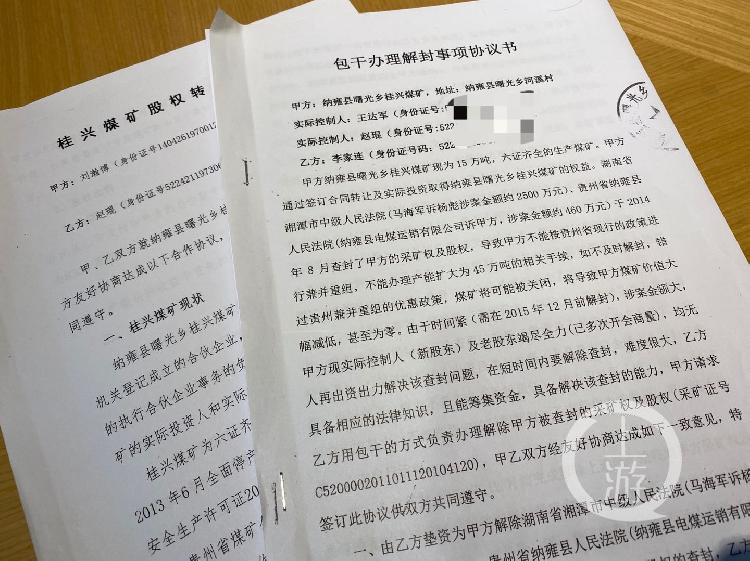 桂兴煤矿股权转
甲方：刘瀚博（身份证号1404261970012
乙方：赵琨（身份证号5224211973060
甲、乙双方就纳雍县曙光乡桂
方友好协商达成以下合作协议，
同遵守。
一、桂兴煤矿现状
纳雍县曙光乡桂兴煤矿
机关登记成立的合伙企业，
的执行合伙企业事务的负
矿的实际投资人和实际
桂兴煤矿为六证齐
2013年6月全面停产
安全生产许可证20
贵州省煤矿
包干办理解封事项协议书
甲方：纳雍县曙光乡桂兴煤矿，地址：纳雍县曙光乡河溪村
实际控制人：王达军（身份证号:
实际控制人：赵琨（身份证号：522
乙方：李家连（身份证号码：522
甲方纳雍县曙光乡桂兴煤矿现为15万吨，六证齐全的生产煤矿。甲方
通过签订合同转让及实际投资取得纳雍县曙光乡桂兴煤矿的权益。湖南省
湘潭市中级人民法院（马海军诉杨彪涉案金额约2500万元）、贵州省纳雍县
人民法院（纳雍县电煤运销有限公司诉甲方，涉案金额约460万元）于2014
年8月查封了甲方的采矿权及股权，导致甲方不能按贵州省现行的政策进
行兼并重组，不能办理产能扩大为45万吨的相关手续，如不及时解封，错
过贵州兼并重组的优惠政策，煤矿将可能被关闭，将导致甲方煤矿价值大
幅减低，甚至为零。由于时间紧（需在2015年12月前解封），涉案金额大，
甲方现实际控制人（新股东）及老股东竭尽全力（已多次开会商量），均无
人再出资出力解决该查封问题，在短时间内要解除查封，难度很大，乙方
具备相应的法律知识，且能筹集资金，具备解决该查封的能力，甲方请求
乙方用包干的方式负责办理解除甲方被查封的采矿权及股权（采矿证号
C5200002011011120104120），甲乙双方经友好协商达成如下一致意见，特
签订此协议供双方共同遵守。
一、由乙方垫资为甲方解除湖南省湘潭市中级人民法院（马海军诉杨
贵州省纳雍县人民法院（纳雍县电煤运销有限
上游